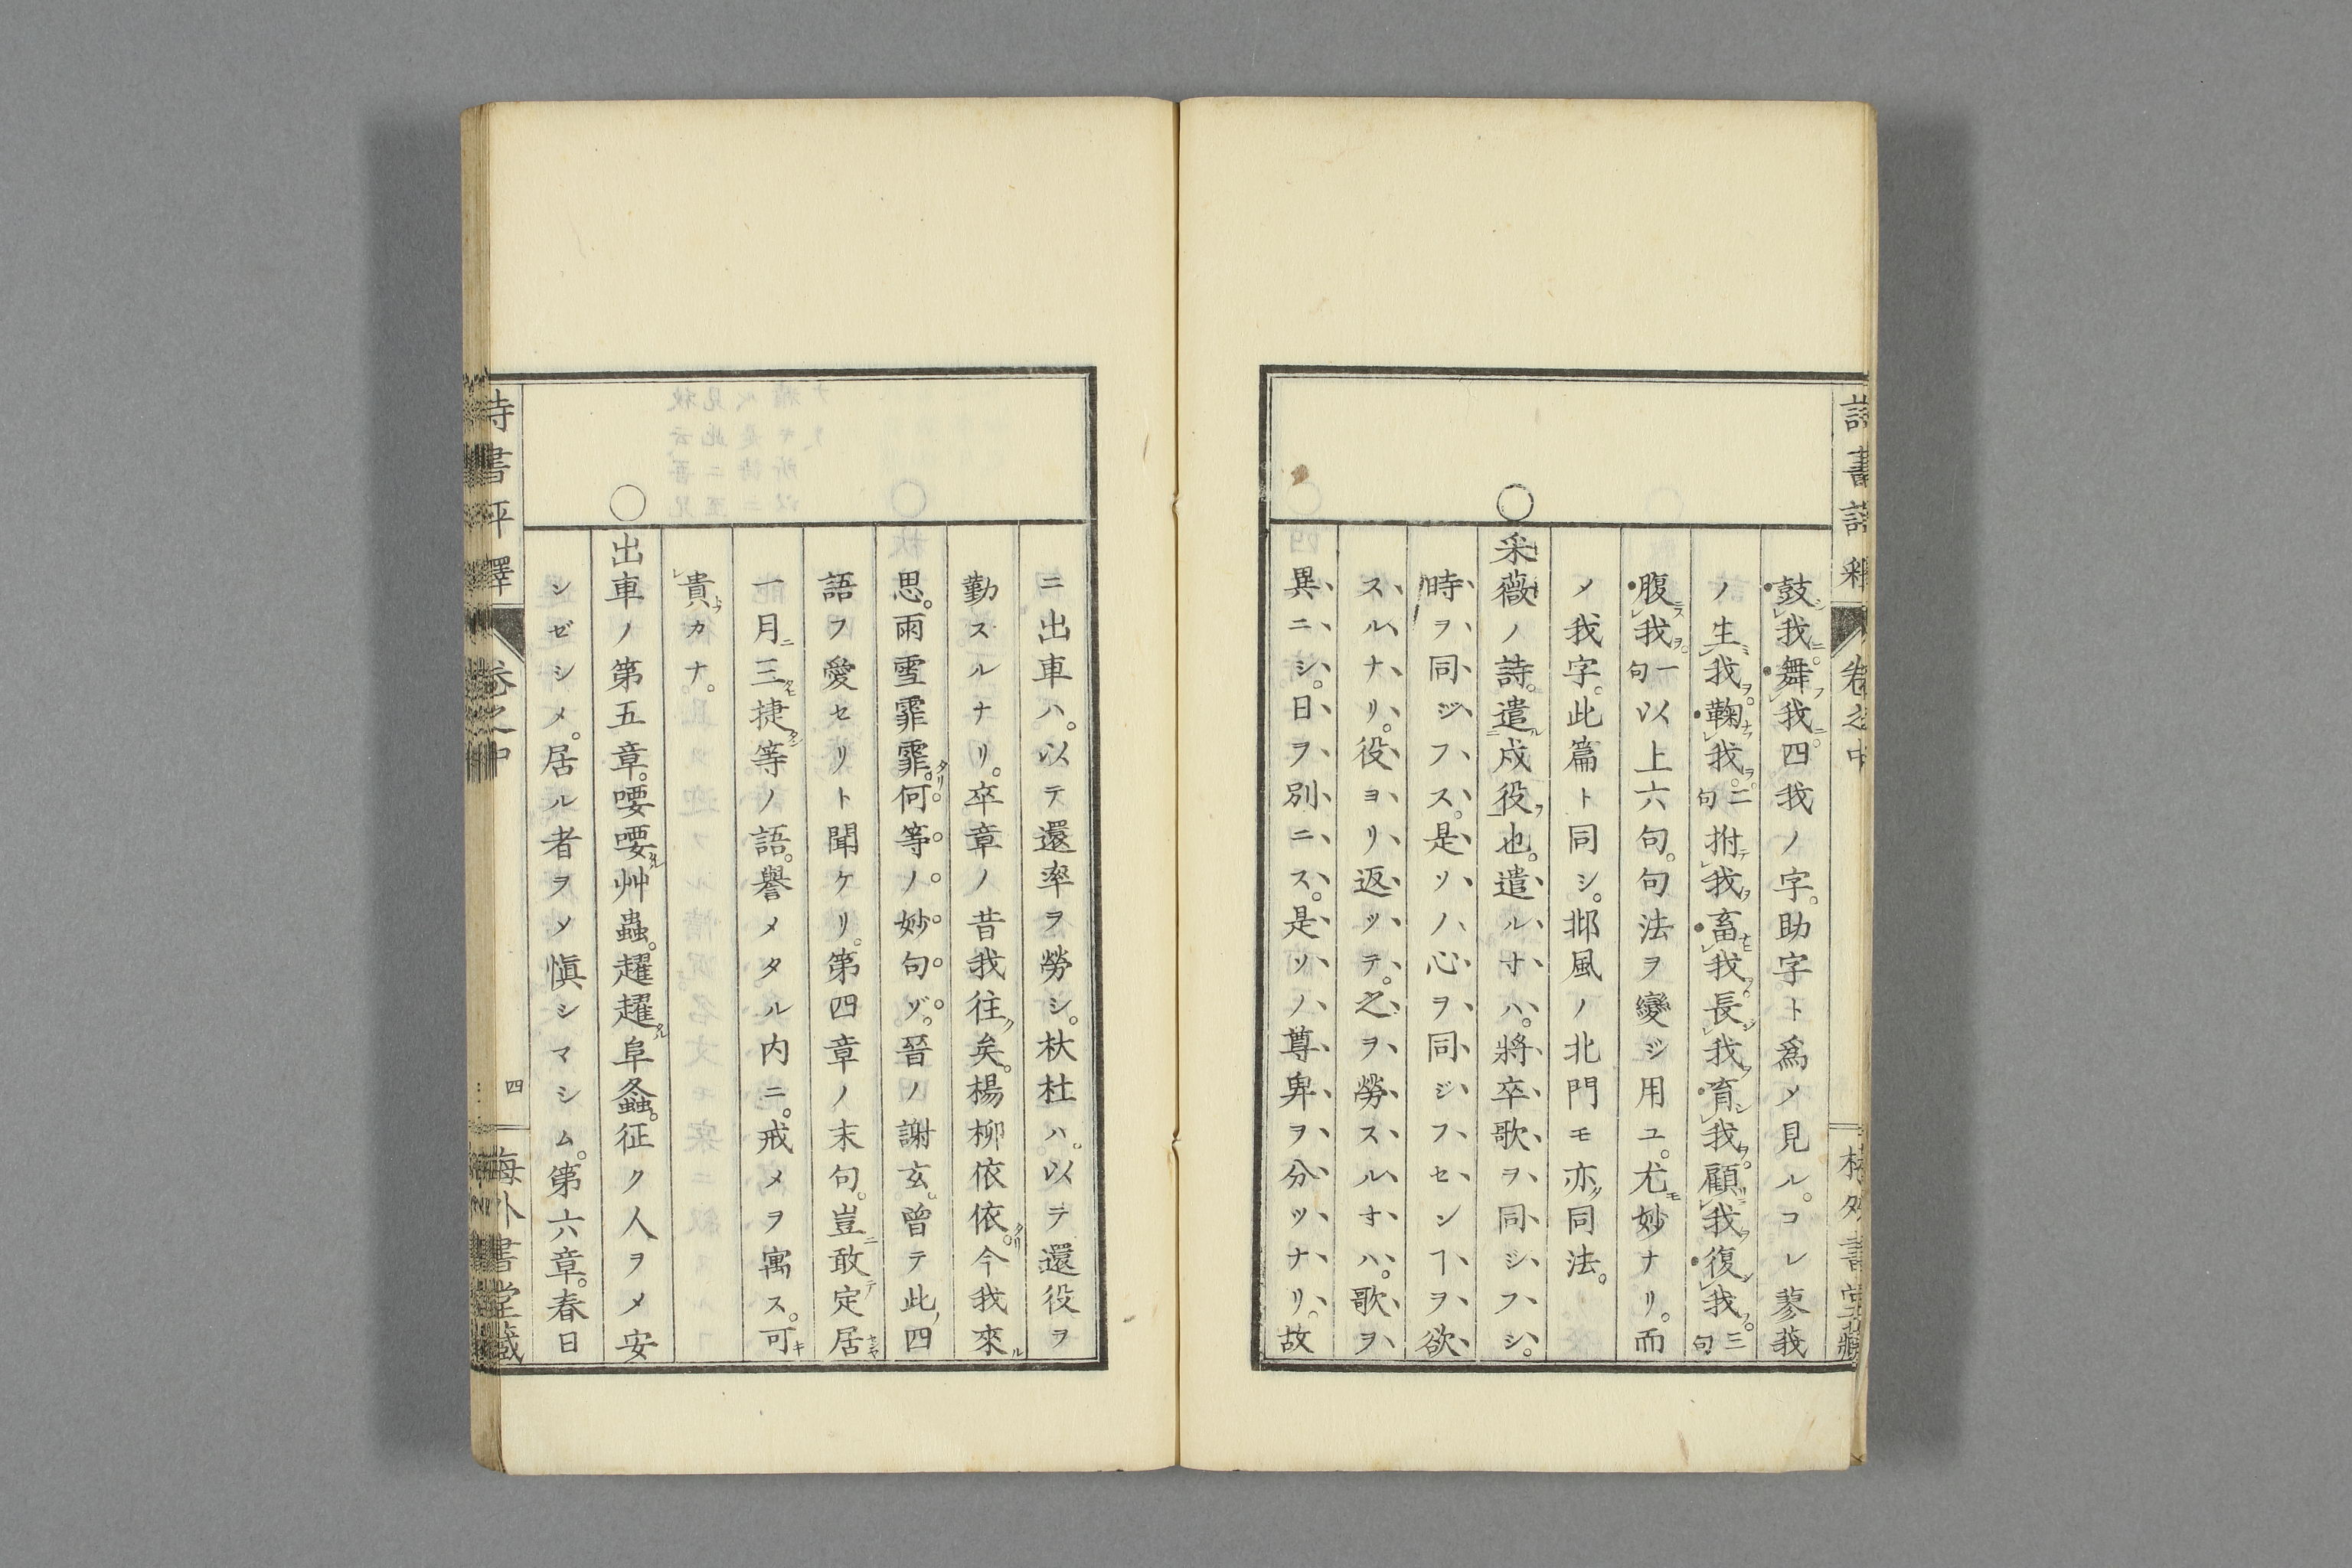 鼓我舞我四我ノ字。助字ト爲メ見ル。コレ蓼莪
ノ生我。鞠我。二句拊我畜我。長我育我。顧我復我。三句
腹我。一句以上六句。句法ヲ變ジ用ユ。尤妙ナリ。而
ノ我字。此篇ト同シ。邶風ノ北門モ亦同法。
○采薇ノ詩。遣戍役也。遣ルオハ。將卒歌ヲ同ジフシ。
時ヲ同ジフス。是ソノ心ヲ同ジフセンヿヲ欲
スルナリ。役ヨリ返ッテ。之ヲ勞スルオハ。歌ヲ
異ニシ。日ヲ別ニス。是ソノ尊卑ヲ分ツナリ。故
ニ出車ハ。以テ還率ヲ勞シ。杕杜ハ。以テ還役ヲ
勤スルナリ。卒章ノ昔我往矣。楊柳依依。今我來
思。雨雪霏霏。何等ノ妙句ゾ。晉ノ謝玄。曾テ此四
語フ愛セリト聞ケリ。第四章ノ末句。豈敢定居
一月三捷等ノ語。譽メタル内ニ。戒メヲ寓ス。可
貴カナ。
○出車ノ第五章。喓喓艸蟲。趯趯阜螽。征ク人ヲメ安
シゼシメ。居ル者ヲメ愼シマシム。第六章。春日
詩書評釋 卷之中 四 梅外書堂藏